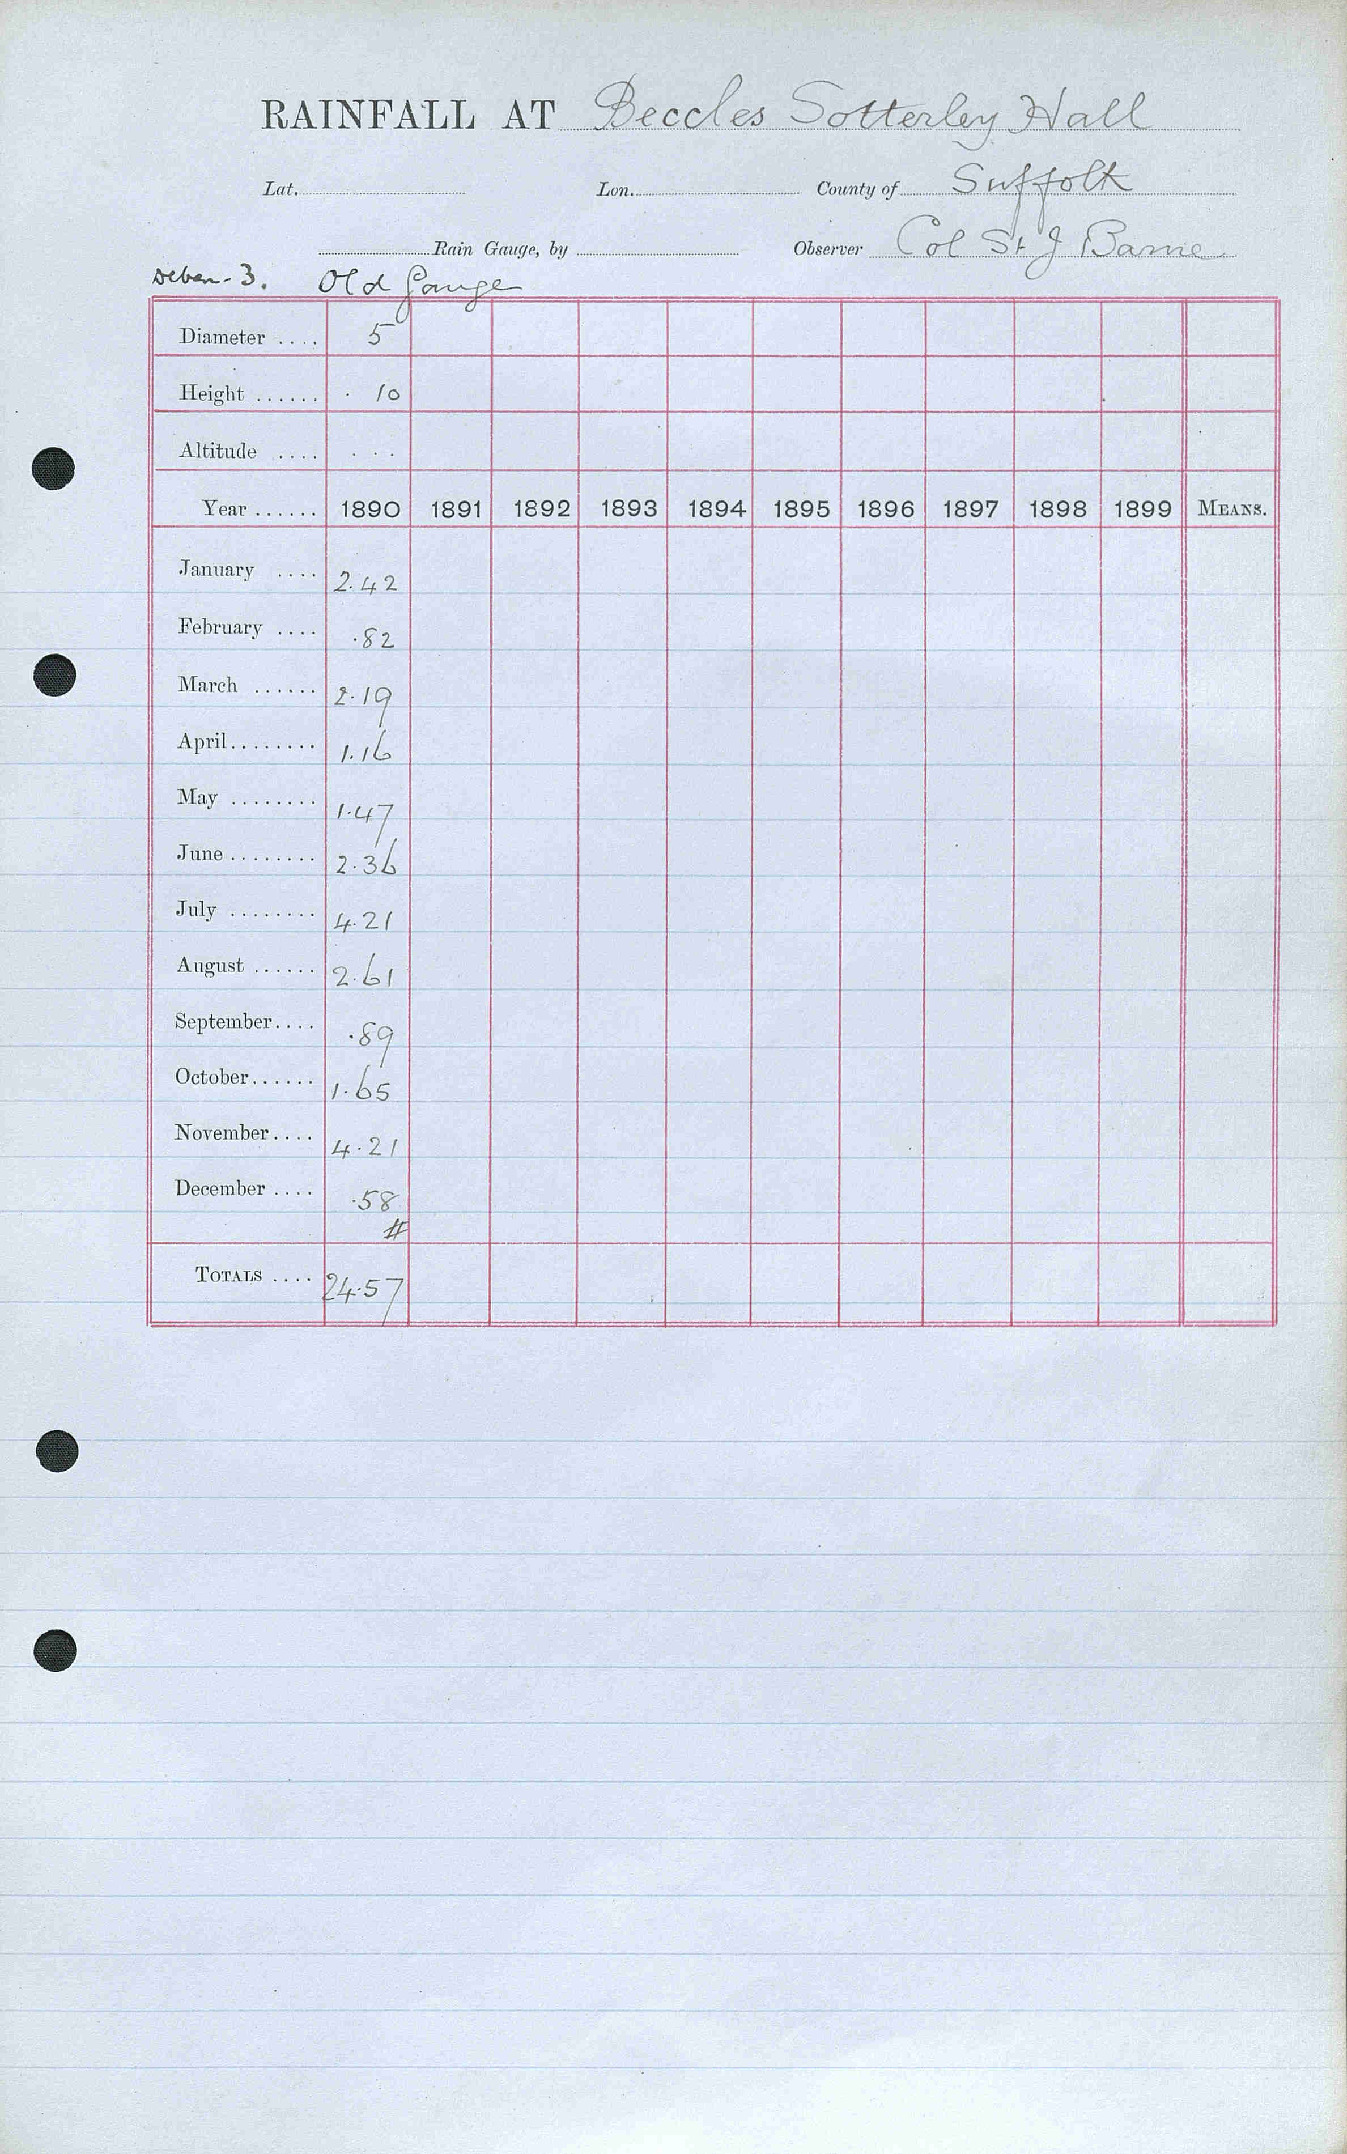 RAINFALL AT Beccles Sotterley Hall
Lat. Lon. County of Suffolk
Rain Gauge, by Observer Col St J Barne
Deben-3. Old Gauge
Diameter .... 5
Height ...... 10
Altitude .... ...
Year ...... 1890 1891 1892 1893 1894 1895 1896 1897 1898 1899 MEANS.
January .... 2.42
February .... .82
March ...... 2.19
April........ 1.16
May ........ 1.47
June........ 2.36
July ........ 4.21
August ...... 2.61
September.... .89
October...... 1.65
November.... 4.21
December .... .58
#
TOTALS .... 24.57